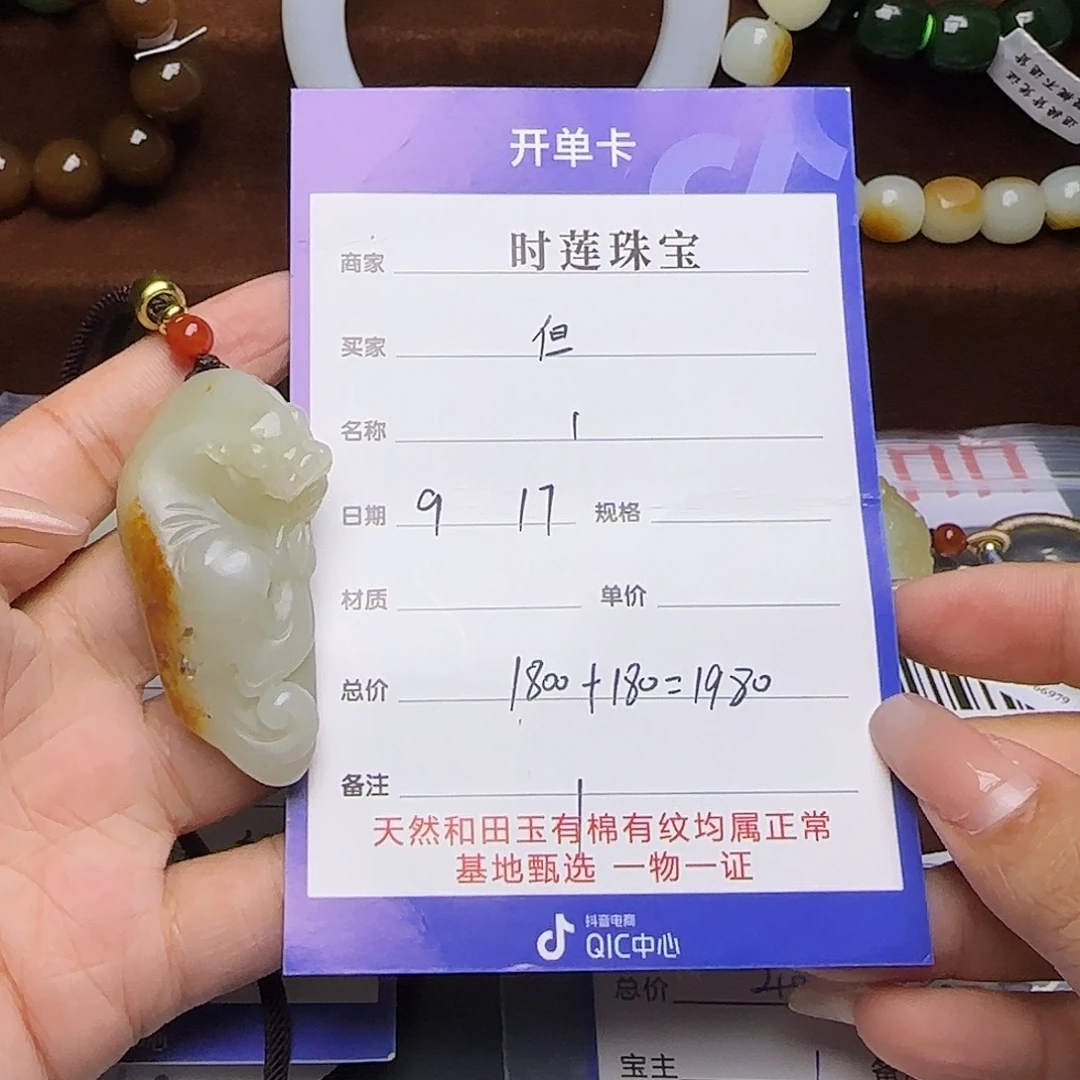 开单卡
商家 时莲珠宝
买家 但
名称 1
日期 9 17 规格
材质 单价
总价 1800+180=1980
备注 1
天然和田玉有棉有纹均属正常
基地甄选 一物一证
抖音电商
QIC中心
66979
总价
宝主